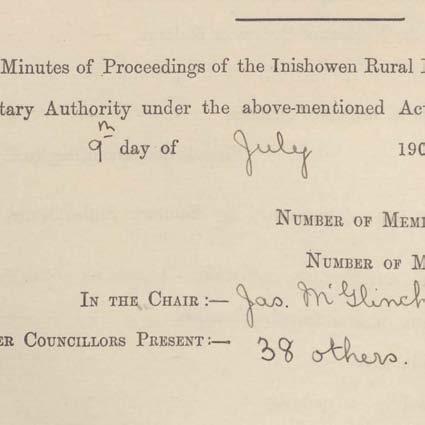 Minutes of Proceedings of the Inishowen Rural
tary Authority under the above-mentioned Ac
9th day of July 190
NUMBER OF MEM
NUMBER OF M
IN THE CHAIR :— Jas. McGlinch
ER COUNCILLORS PRESENT :— 38 others.